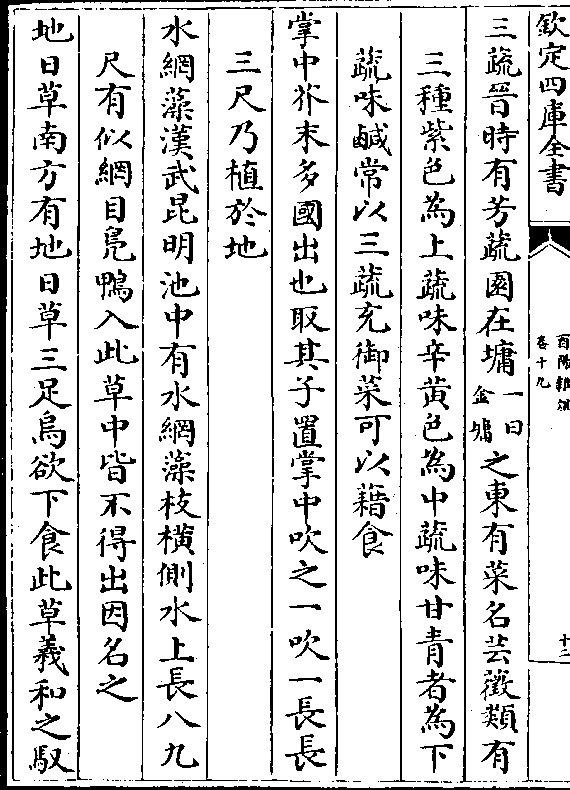 欽定四庫全書
酉陽雜俎
卷十九
十二
三蔬晉時有芳蔬園在墉一曰金墉之東有菜名芸薇類有
三種紫色為上蔬味辛黃色為中蔬味甘青者為下
蔬味鹹常以三蔬充御菜可以藉食
掌中芥末多國出也取其子置掌中吹之一吹一長長
三尺乃植於地
水網藻漢武昆明池中有水網藻枝橫側水上長八九
尺有似網目鳧鴨入此草中皆不得出因名之
地日草南方有地日草三足烏欲下食此草羲和之馭